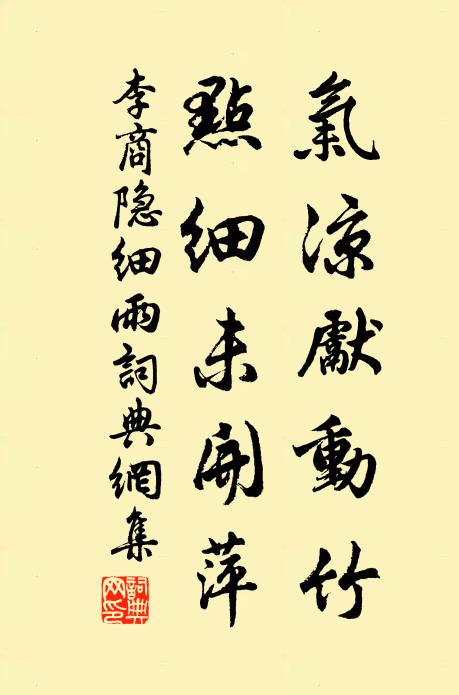 氣涼獻動竹
點細未開萍
李商隐細雨詞典網集
詞典
网印